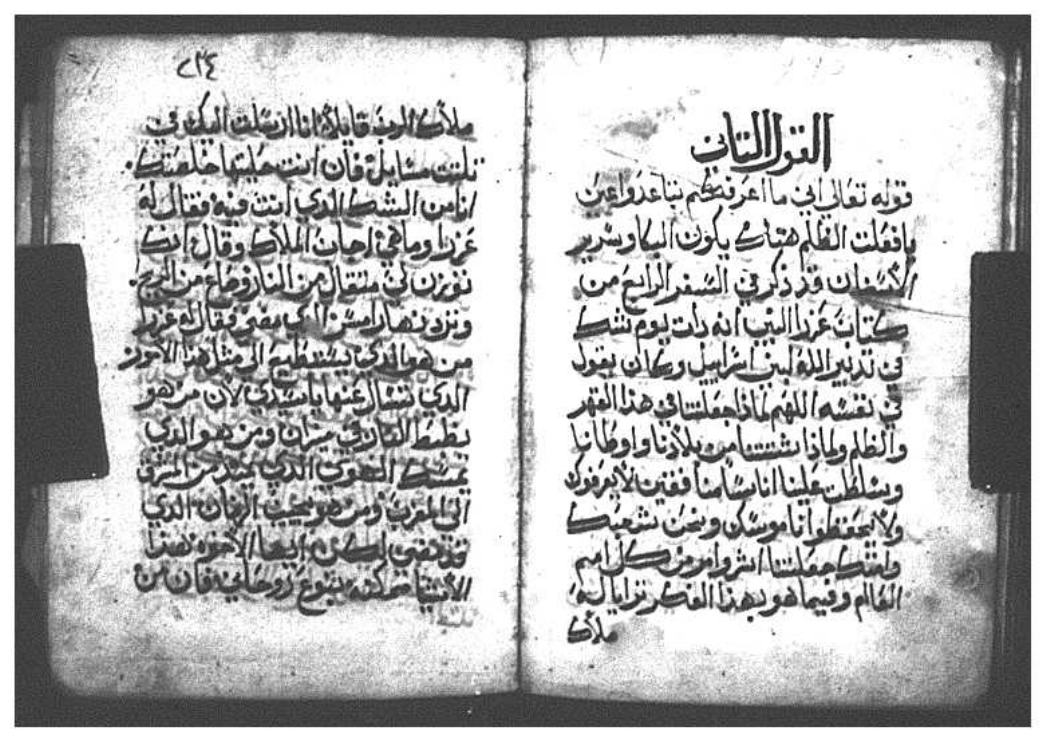 القول التاني
قوله تعالي اني ما اعرفكم تباعدوا عني
يا فعلت الظلم هناك يكون البكا وسرير
الاسنان قد ذكر في السفر الرابع من
كتاب عزرا النبي انه دات يوم شك
في تدبير الله لبني اسراييل وكان يقول
في نفسه اللهم لماذا جعلتنا في هذا القهر
والظلم ولماذا شتتنا من بلادنا واوطاننا
وسلطت علينا اناسا منافقين لا يعرفوك
ولا يحفظوا ناموسك ونحن شعبك
وامتك جعلتنا اشر وامر من كل امم
العالم وفيما هو بهذا الفكر ترايا له
ملاك
٢٣٤
ملاك الرب قايلا له انا ارسلت اليك في
تلتت مسايل فان انت حليتها خلصتك
انا من الشك الدي انت فيه فقال له
عزرا وما هي اجاب الملاك وقال اريدك
توزن لي متقال من النار وصاع من الريح
وترد نهار امس الدي مضي فقال له عزرا
من هو الدي يستطيع الي متل هدا الامور
الدي تسال عنها يا سيدي لان من هو
يظبط النار في ميزان ومن هو الدي
يمسك الهوي الدي يمتد من المشرق
الي المغرب ومن هو يجيب الزمان الدي
قد مضي لكن ايها الاخوه هذا
الاشيا ممكنه بنوع روحاني فان من